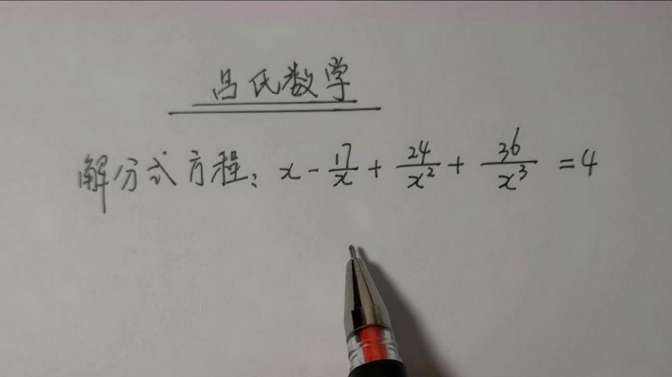 吕氏数学
解分式方程: x - 17/x + 24/x² + 36/x³ = 4